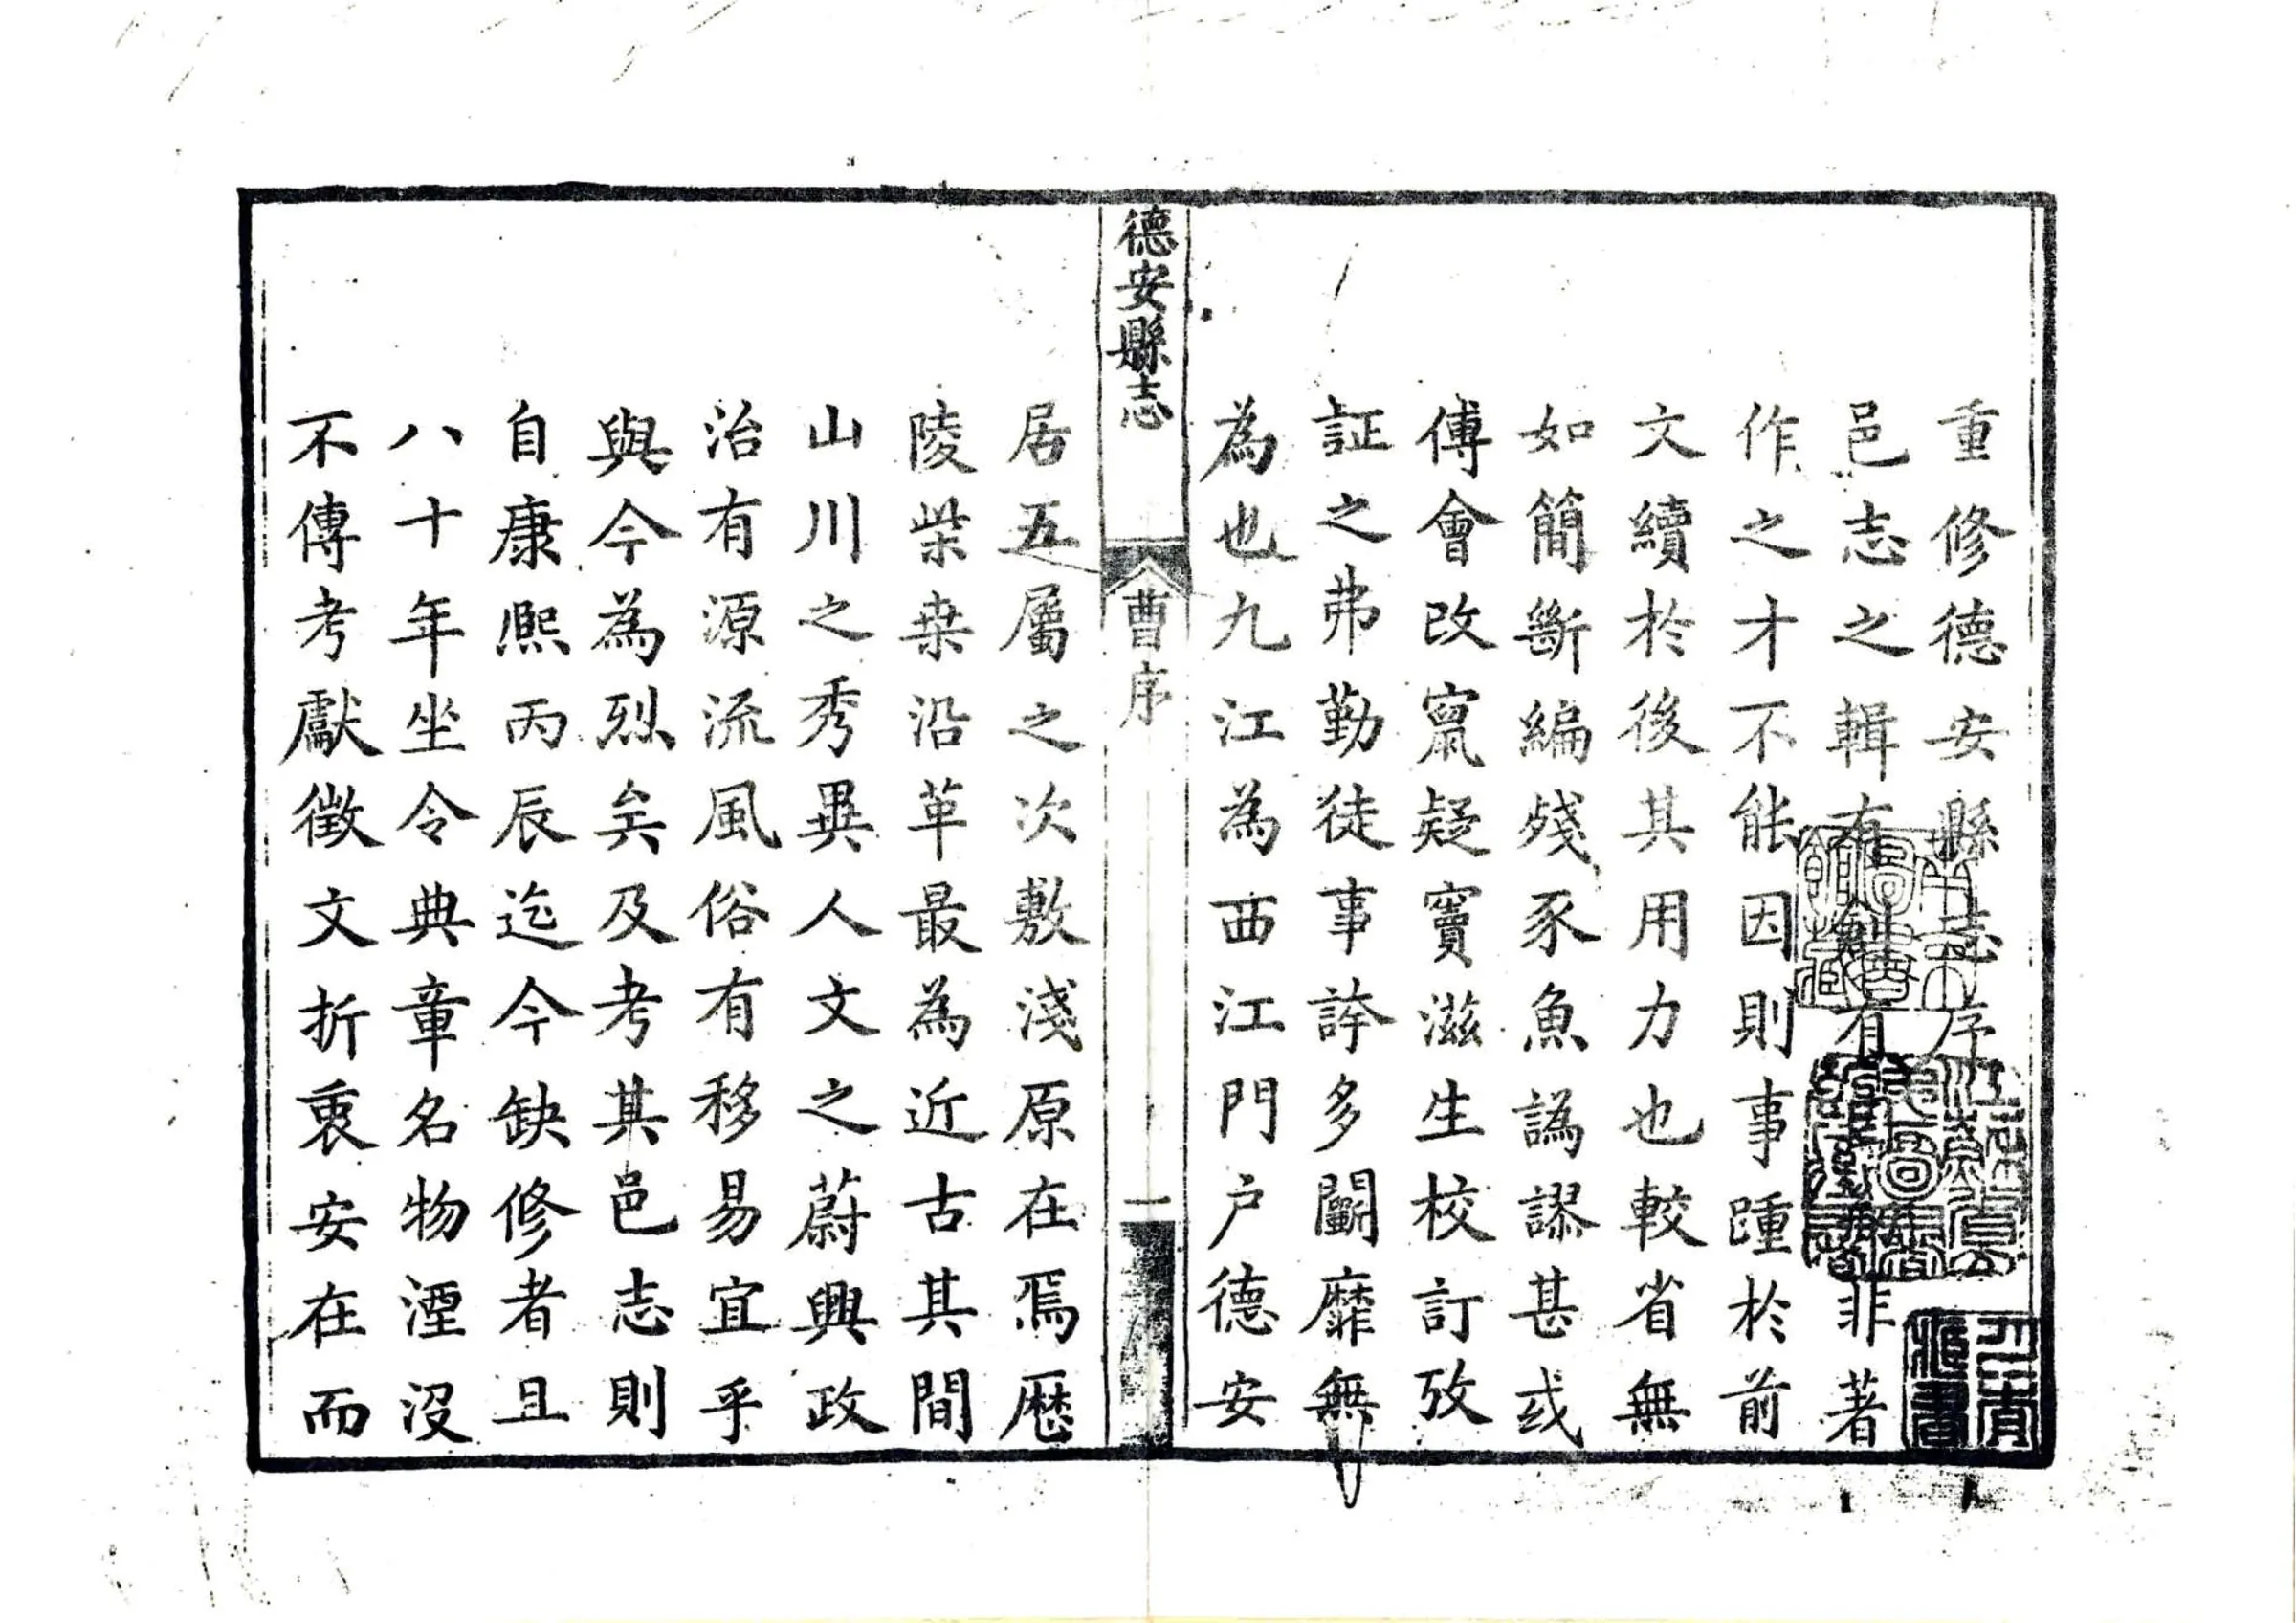 重修德安縣志序
邑志之輯有有非著
作之才不能因則事踵於前
文續於後其用力也較省無
如簡斷編殘豕魚譌謬甚或
傅會改竄疑竇滋生校訂攷
証之弗勤徒事誇多鬭靡無
為也九江為西江門户德安
德安縣志
曹序
一
居五屬之次敷淺原在焉歷
陵柴桒沿革最為近古其間
山川之秀異人文之蔚興政
治有源流風俗有移易宜乎
與今為烈矣及考其邑志則
自康熙丙辰迄今缺修者且
八十年坐令典章名物湮沒
不傳考獻徵文折衷安在而
南京
圖書
館藏